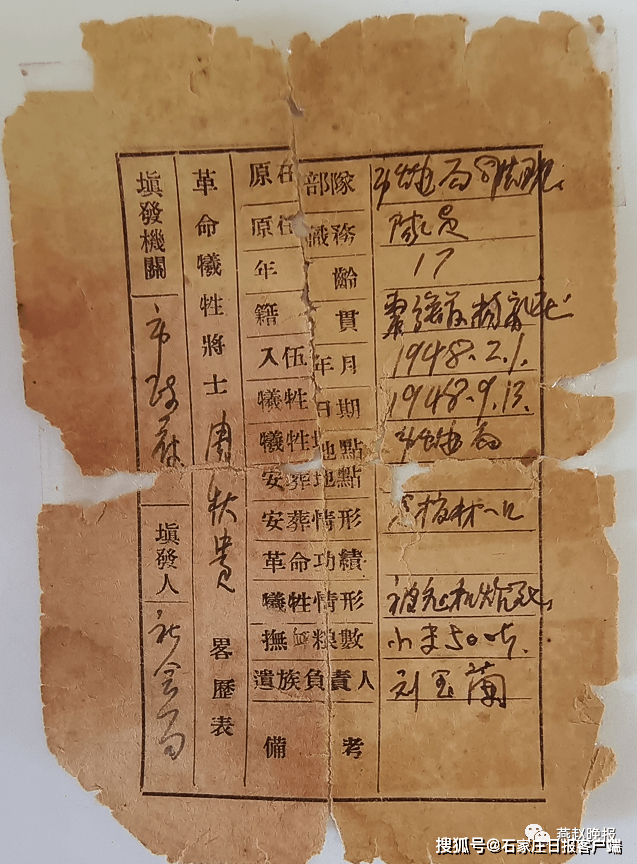 填發機關 市政府 填發人 社会局
革命犧牲將士 周秋貴 畧歷表
原在部隊 市 局
原任職務 队员
年齡 17
籍貫
入伍年月 1948.2.1.
犧牲日期 1948.9.13.
犧牲地點 市 局
安葬地點
安葬情形 板材一口
革命功績
犧牲情形 被飞机炸死
撫卹粮數 小米500斤
遺族負責人 刘玉蘭
備考
燕赵晚报
搜狐号@石家庄日报客户端